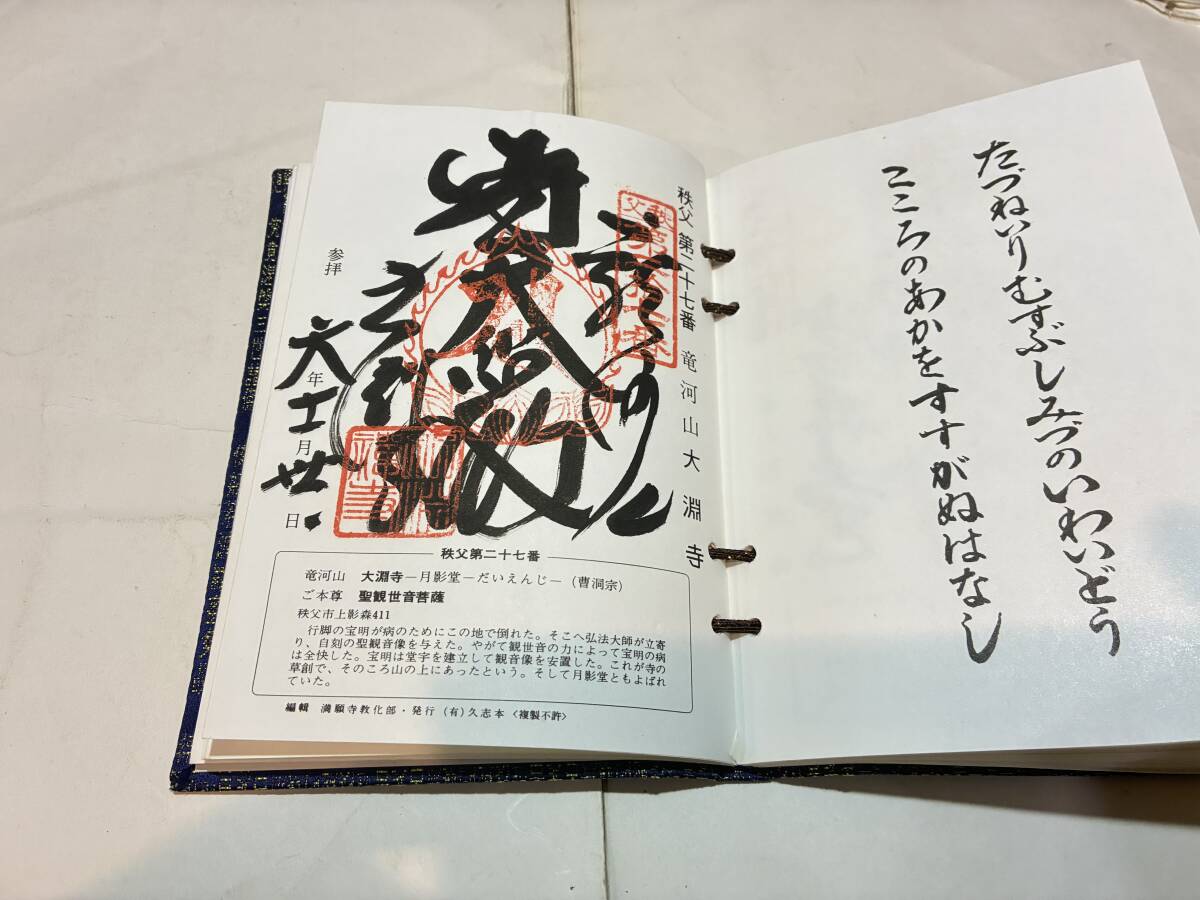 たづねいりむすぶしみづのいわいどう
こころのあかをすすがぬはなし
秩父 第二十七番 竜河山大淵寺
参拝
六年十一月廿日
秩父第二十七番
竜河山 大淵寺－月影堂－だいえんじ－（曹洞宗）
ご本尊 聖観世音菩薩
秩父市上影森411
行脚の宝明が病のためにこの地で倒れた。そこへ弘法大師が立寄
り、自刻の聖観音像を与えた。やがて観世音の力によって宝明の病
は全快した。宝明は堂宇を建立して観音像を安置した。これが寺の
草創で、そのころ山の上にあったという。そして月影堂ともよばれ
ていた。
編輯 満願寺教化部・発行（有）久志本〈複製不許〉